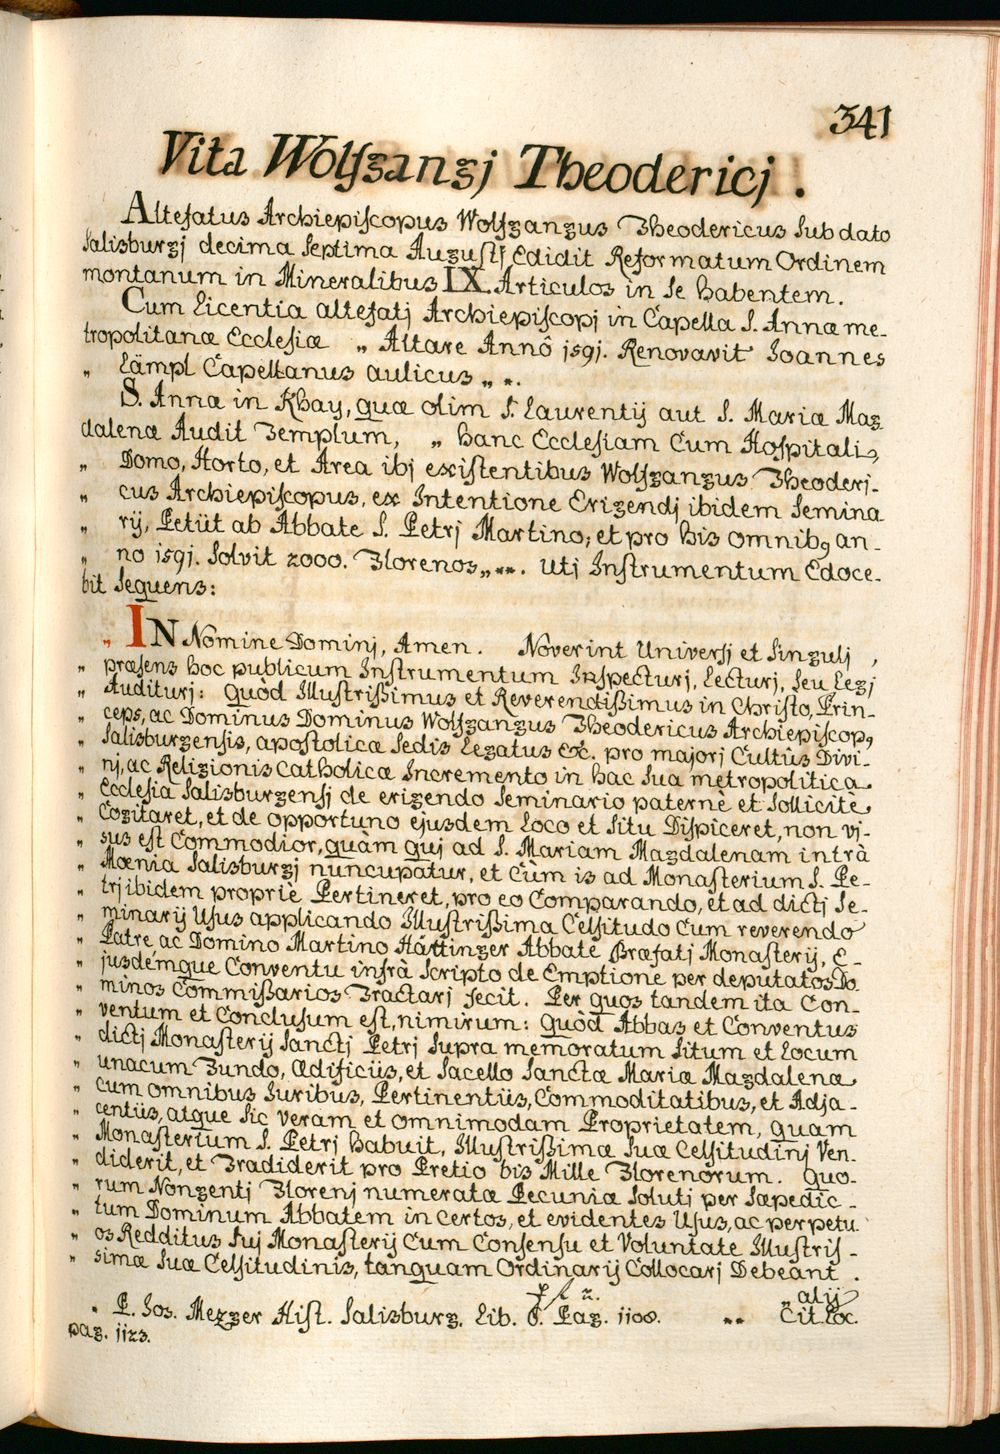 341
Vita Wolfgangj Theodericj .
Altefatus Archiepiscopus Wolfgangus Theodericus sub dato
Salisburgj decima septima Augustj Edidit Reformatum Ordinem
montanum in Mineralibus IX. Articulos in se habentem .
Cum Licentia altefatj Archiepiscopj in Capella S. Annæ me-
tropolitanæ Ecclesiæ „ Altare Annô 1591. Renovavit Joannes
„ Lämpl Capellanus aulicus „ *.
S. Anna in Khay, quæ olim S. Laurentij aut S. Mariæ Mag
dalenæ Audit Templum, „ hanc Ecclesiam Cum Hospitali,
„ Domo, Horto, et Area ibj existentibus Wolfgangus Theoderj-
„ cus Archiepiscopus, ex Intentione Erigendj ibidem Semina
„ rij, Petiit ab Abbate S. Petrj Martino; et pro his omnibꝫ an-
„ no 1591. Solvit 2000. Florenos „ **. Utj Instrumentum Edoce-
bit sequens:
„ IN Nomine Dominj, Amen. Noverint Universj et Singulj ,
„ præsens hoc publicum Instrumentum Inspecturj, Lecturj, seu Legj
„ Auditurj: quòd Illustrißimus et Reverendißimus in Christo, Prin-
„ ceps, ac Dominus Dominus Wolfgangus Theodericus Archiepiscopꝫ
„ Salisburgensis, apostolicæ Sedis Legatus &c. pro majorj Cultûs Divi-
„ nj, ac Religionis Catholicæ Incremento in hac sua metropolitica
„ Ecclesia Salisburgensj de erigendo Seminario paternè et sollicitè
„ Cogitaret, et de opportuno ejusdem Loco et Situ Dispiceret, non vj-
„ sus est Commodior, quàm quj ad S. Mariam Magdalenam intrà
„ Mœnia Salisburgj nuncupatur, et Cùm is ad Monasterium S. Pe-
„ trj ibidem propriè Pertineret, pro eo Comparando, et ad dictj Se-
„ minarij Usus applicando Illustrissima Celsitudo Cum reverendo
„ Patre ac Domino Martino Hattinger Abbate Præfatj Monasterij, E-
„ jusdémque Conventu infrà Scripto de Emptione per deputatos Do
„ minos Commißarios Tractarj fecit. Per quos tandem ita Con-
„ ventum et Conclusum est, nimirum: quòd Abbas et Conventus
„ dictj Monasterij Sanctj Petrj supra memoratum Situm et Locum
„ unacum Fundo, Ædificiis, et Sacello Sanctæ Mariæ Magdalenæ
„ cum omnibus Juribus, Pertinentiis, Commoditatibus, et Adja-
„ centiis, atque sic veram et omnimodam Proprietatem, quam
„ Monasterium S. Petrj habuit, Illustrißimæ Suæ Celsitudinj Ven-
„ diderit, et Tradiderit pro Pretio bis Mille Florenorum. Quo-
„ rum Nongentj Florenj numeratæ Pecuniæ solutj per sæpedic -
„ tum Dominum Abbatem in certos, et evidentes Usus, ac perpetu
„ os Redditus suj Monasterij Cum Consensu et Voluntate Illustris -
„ simæ Suæ Celsitudinis, tanquam Ordinarij Collocarj Debeant .
„ alij
* P. Jos. Mezger Hist. Salisburg. Lib. 6. Pag. 1108. ** Cit. Loc.
pag. 1123.